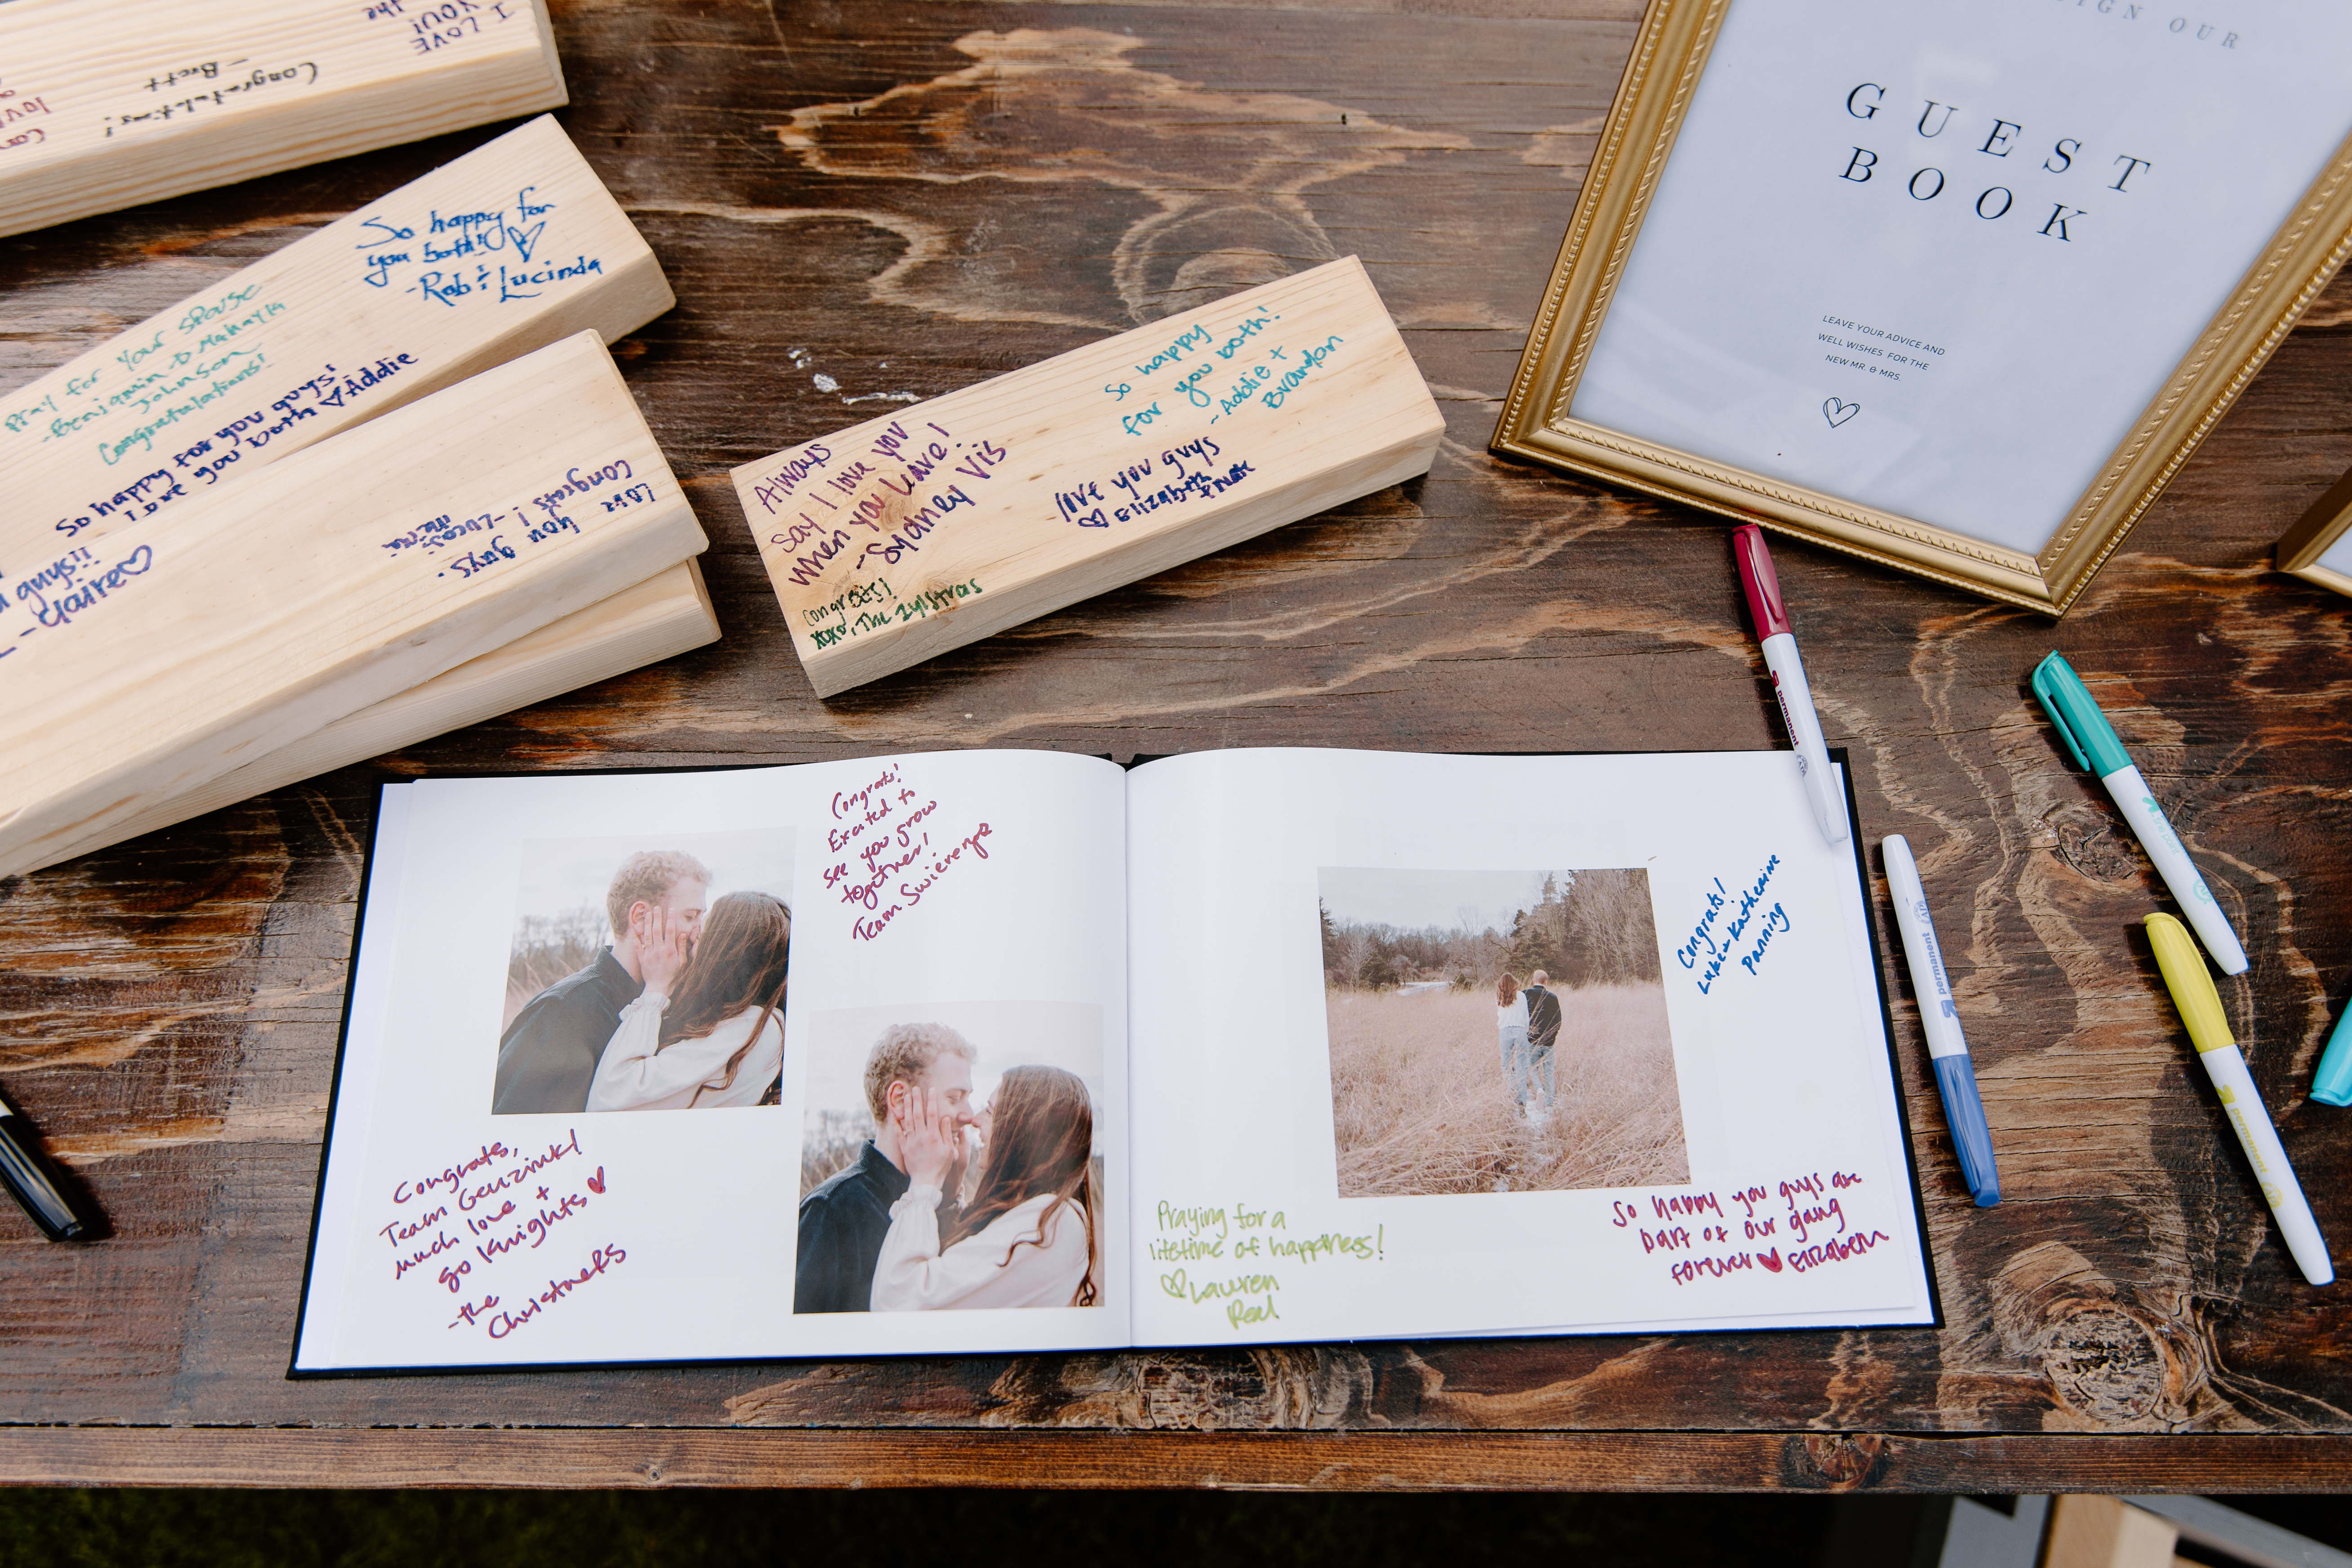 I LOVE
YOU!
the
Congratulations!
-Brett
So happy for
you both!
-Rob & Lucinda
Pray for your spouse
-Benjamin & Makayla
Johnson
Congratulations!
So happy for you guys!
I love you both Addie
guys!!
-Claire
Love you guys.
Congrats! -Lucas &
Always
say I love you
when you leave!
-Sydney Vis
Congrats!
XOXO, The Zylstras
So happy
for you both!
-Addie +
Brandon
love you guys
Elizabeth
+ Nate
SIGN OUR
GUEST
BOOK
LEAVE YOUR ADVICE AND
WELL WISHES FOR THE
NEW MR. & MRS.
permanent
permanent
permanent
Congrats!
Excited to
see you grow
together!
Team Swierenga
Congrats,
Team Genzink!
much love +
go Knights
-the
Christners
Congrats!
Luke & Katherine
Panning
Praying for a
lifetime of happiness!
Lauren
Deal
So happy you guys are
part of our gang
forever Elizabeth